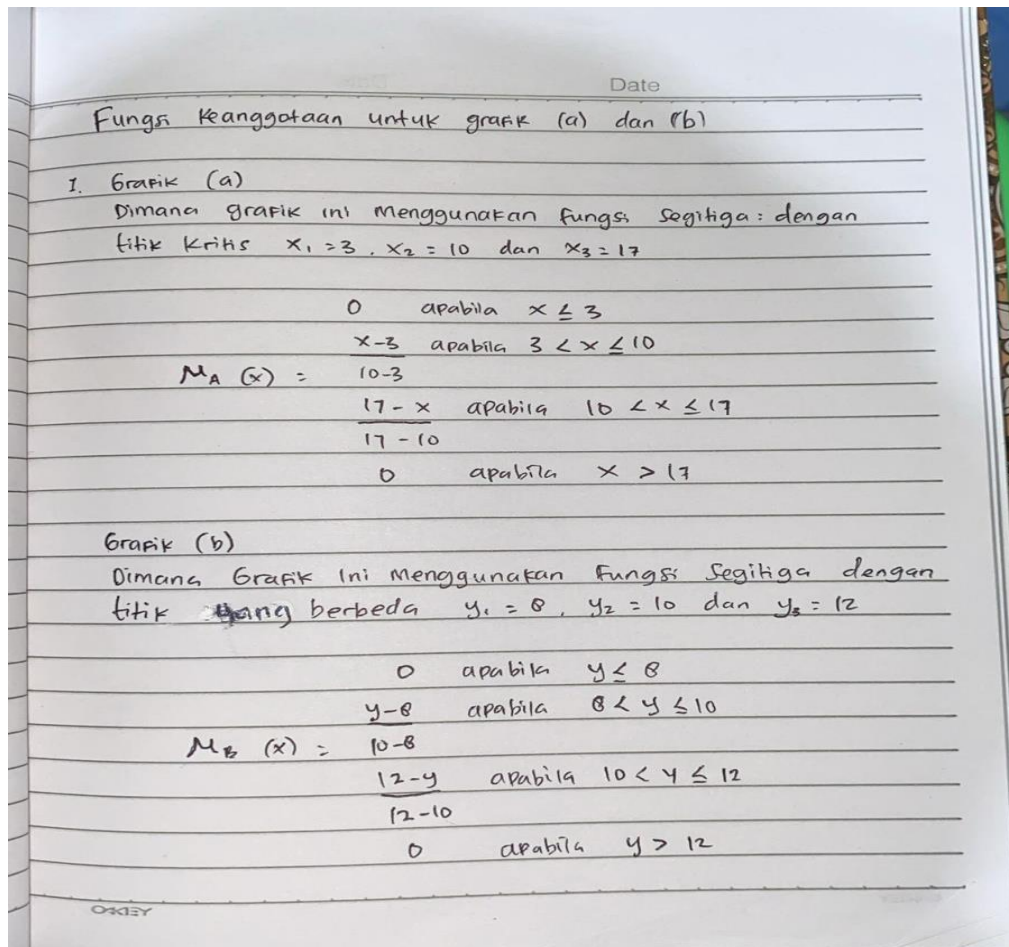 Date
Fungsi Keanggotaan untuk grafik (a) dan (b)
1. Grafik (a)
Dimana grafik ini menggunakan fungsi segitiga : dengan
titik kritis x₁ = 3 , x₂ = 10 dan x₃ = 17
0 apabila x ≤ 3
x-3 apabila 3 < x ≤ 10
μA (x) = 10-3
17 - x apabila 10 < x ≤ 17
17 - 10
0 apabila x > 17
Grafik (b)
Dimana Grafik ini menggunakan fungsi segitiga dengan
titik yang berbeda y₁ = 8 , y₂ = 10 dan y₃ = 12
0 apabila y ≤ 8
y-8 apabila 8 < y ≤ 10
μB (x) = 10-8
12-y apabila 10 < y ≤ 12
12-10
0 apabila y > 12